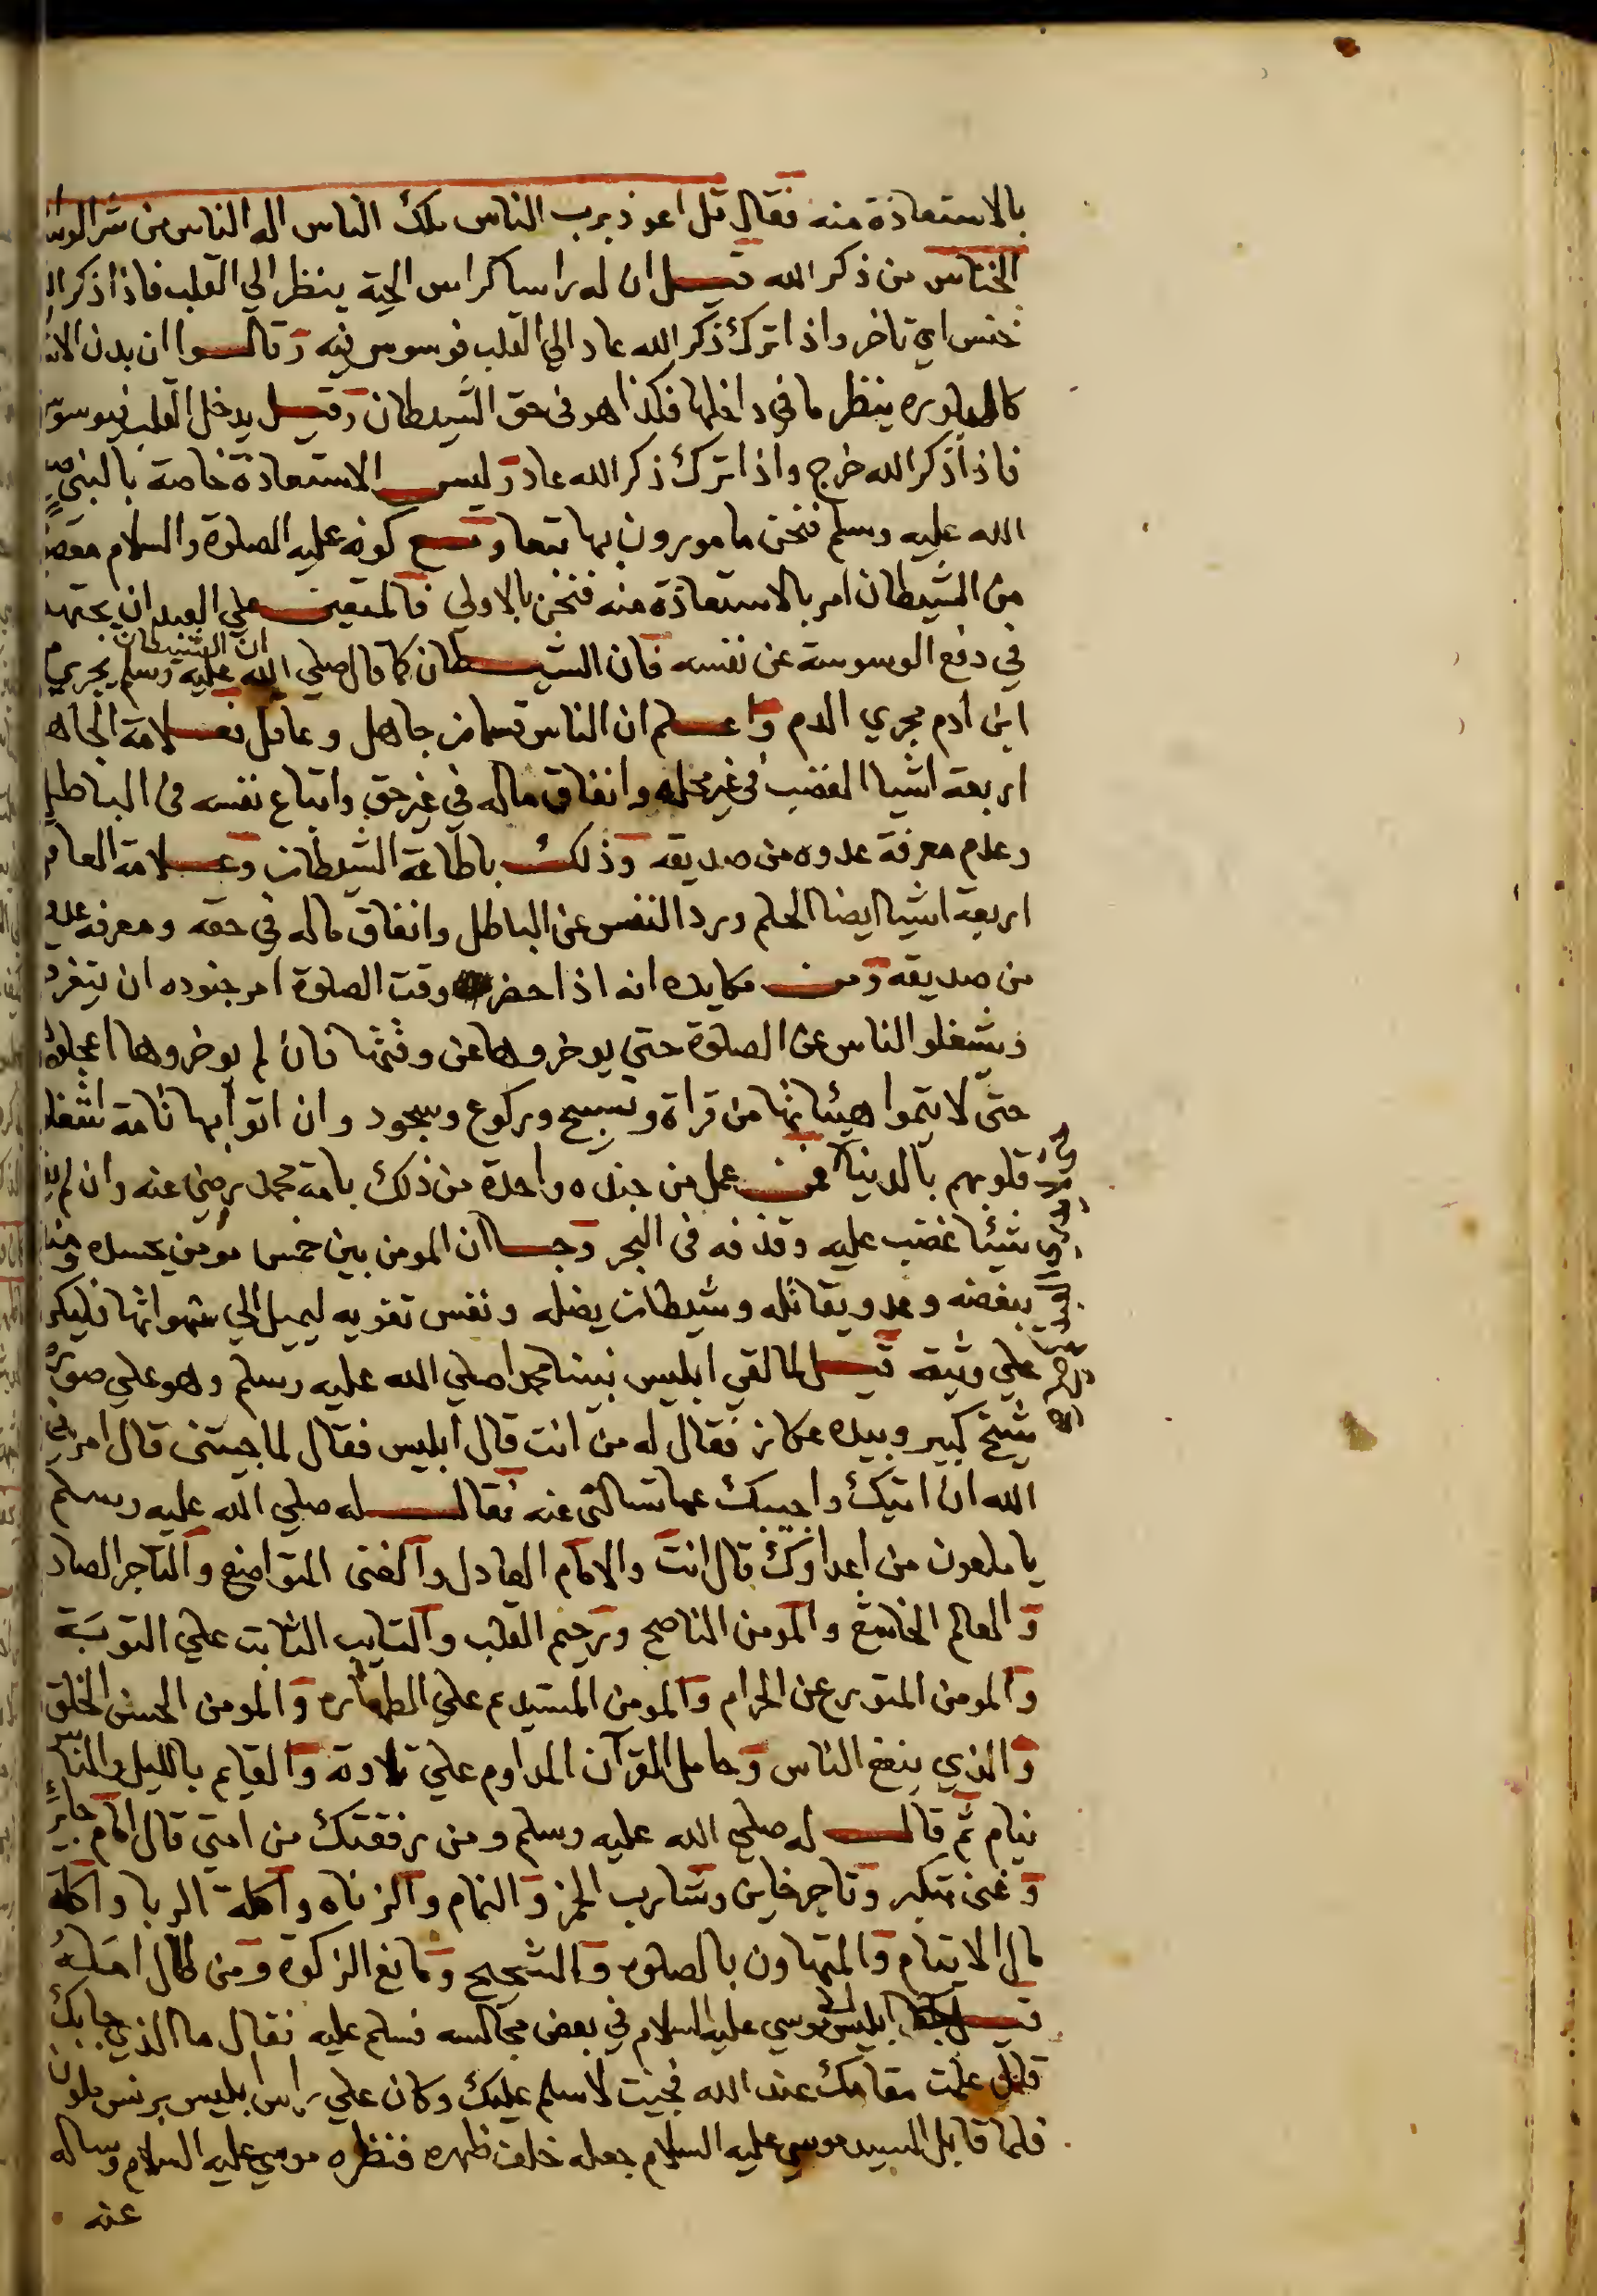 بالاستعاذة منه فقال قل اعوذ برب الناس ملك الناس اله الناس من شر الوسواس
الخناس من ذكر الله قيل ان له راسا كراس الحية ينظر الي القلب فاذا ذكر الله
خنس اي تاخر واذا ترك ذكر الله عاد الي القلب فوسوس فيه وقالوا ان بدن الانسان
كالبلوره ينظر ما في داخلها فكذا هو في حق الشيطان وقيل يدخل القلب فيوسوس
فاذا ذكر الله خرج واذا ترك ذكر الله عاد وليس الاستعاذة خاصة بالنبي صلي
الله عليه وسلم فنحن مامورون بها تبعا ومع كونه عليه الصلوة والسلام معصوم
من الشيطان امر بالاستعاذة منه فنحن بالاولي فالمتعين علي العبد ان يجتهد
في دفع الوسوسة عن نفسه فان الشيطان كما قال صلي الله عليه وسلم ان الشيطان يجري من
ابن ادم مجري الدم واعلم ان الناس قسمان جاهل وعاقل فعلامة الجاهل
اربعة اشيا الغضب في غير محله وانفاق ماله في غير حق واتباع نفسه في الباطل
وعدم معرفة عدوه من صديقه وذلك باطاعة الشيطان وعلامة العاقل
اربعة اشيا ايضا الحلم ورد النفس عن الباطل وانفاق ماله في حقه ومعرفة عدوه
من صديقه ومن مكايده انه اذا حضر وقت الصلوة امر جنوده ان يتفرقوا
ويشغلوا الناس عن الصلوة حتي يوخروها عن وقتها فان لم يوخروها اعجلوهم
حتي لا يتموا هيئاتها من قراة وتسبيح وركوع وسجود وان اتوا بها تامة اشغلوا
قلوبهم بالدنيا فمن عمل من جنده واحدة من ذلك بامة محمد رضي عنه وان لم
شيئا غضب عليه وقذفه في البحر وجا ان المومن بين خمس مومن يحسده ومنافق
يبغضه وعدو يقاتله وشيطان يضله ونفس تغويه ليميل الي شهواتها فليكن
علي وثيقه قيل لما لقي ابليس نبينا محمدا صلي الله عليه وسلم وهو علي صورة
شيخ كبير وبيده عكاز فقال له من انت قال ابليس فقال لما جيتني قال امرني
الله ان اتيك واجيبك عما تسالني عنه فقال له صلي الله عليه وسلم
يا ملعون من اعداوك قال انت والامام العادل والغني المتواضع والتاجر الصادق
والعالم الخاشع والمومن الناصح ورحيم القلب والتايب الثابت علي التوبة
والمومن المتورع عن الحرام والمومن المستيدم علي الطهاره والمومن الحسن الخلق
والذي ينفع الناس وحامل القرآن المداوم علي تلاوته والقايم بالليل والناس
نيام ثم قال له صلي الله عليه وسلم ومن رفقتك من امتي قال امام جاير
وغني متكبر وتاجر خاين وشارب الخمر والنمام والزناه واكلة الربا واكلة
مال الايتام والمتهاون بالصلوه والشحيح ومانع الزكوة ومن طال امله
قيل ابليس لموسي عليه السلام في بعض مجالسه فسلم عليه فقال ما الذي جا بك
قال علمت مقامك عند الله فجيت لاسلم عليك وكان علي راس ابليس برنس ملون
فلما قابل السيد موسي عليه السلام جعله خلف ظهره فنظره موسي عليه السلام وساله
عنه